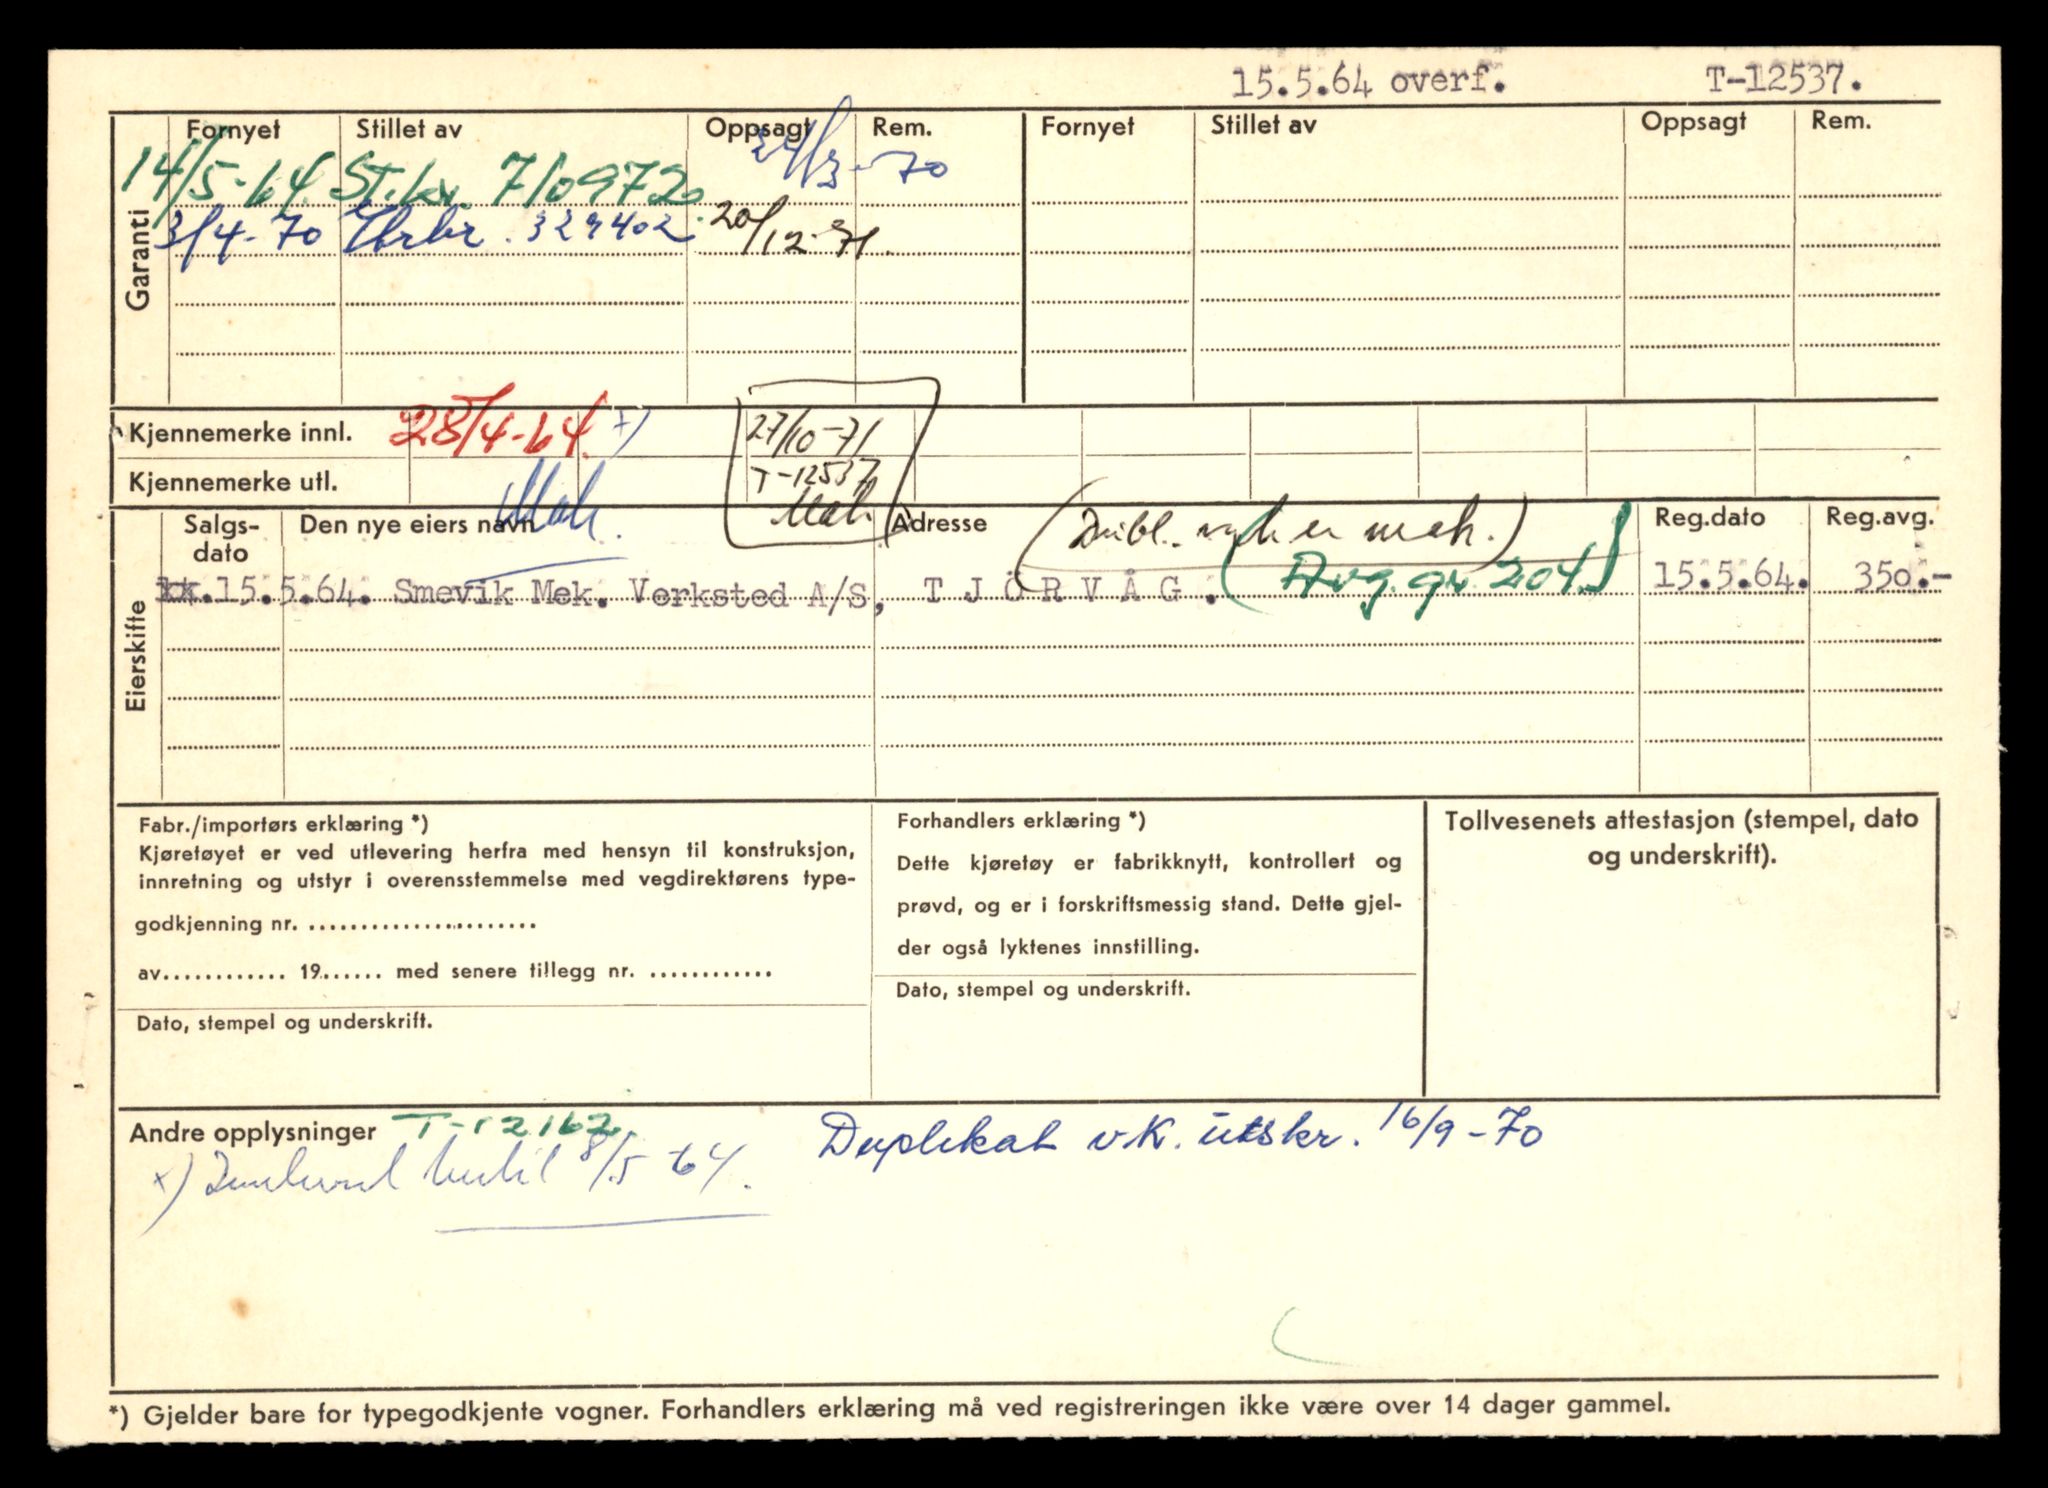 15.5.64 overf. T-12537.
Fornyet Stillet av Oppsagt Rem. Fornyet Stillet av Oppsagt Rem.
14/5-64. St.br. 7109720. 24/3-70
3/4-70 329402 20/12-71.
Garanti
Kjennemerke innl. 28/4-64. x) 27/10-71
Kjennemerke utl. T-12537
Mah. Mah
Salgs-dato Den nye eiers navn Adresse (Dubl. vgh er mek.) Reg.dato Reg.avg.
xx.15.5.64. Smevik Mek. Verksted A/S, T J Ö R V Å G . (Avg. gr. 204.) 15.5.64. 350.-
Eierskifte
Fabr./importørs erklæring *)
Kjøretøyet er ved utlevering herfra med hensyn til konstruksjon,
innretning og utstyr i overensstemmelse med vegdirektørens type-
godkjenning nr. ......................
av............ 19...... med senere tillegg nr. ............
Dato, stempel og underskrift.
Forhandlers erklæring *)
Dette kjøretøy er fabrikknytt, kontrollert og
prøvd, og er i forskriftsmessig stand. Dette gjel-
der også lyktenes innstilling.
Dato, stempel og underskrift.
Tollvesenets attestasjon (stempel, dato
og underskrift).
Andre opplysninger T-12162 Duplikat v.k. utskr. 16/9-70
x) 8/5-64.
*) Gjelder bare for typegodkjente vogner. Forhandlers erklæring må ved registreringen ikke være over 14 dager gammel.